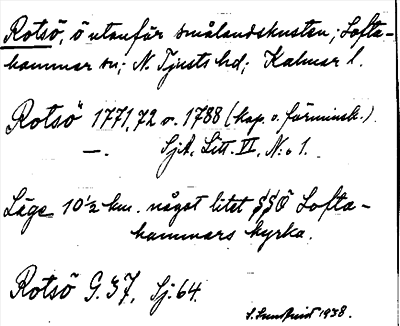 Rotsö, ö utanför smålandskusten; Lofta-
hammar sn; N. Tjusts hd; Kalmar l.
Rotsö 1771, 72 o. 1788 (kop. o. förminsk.)
—. Sjk. Litt. VI, N:o 1.
Läge 10½ km. något litet SSÖ Lofta-
hammars kyrka.
Rotsö G. 37, Sj: 64.
1938.